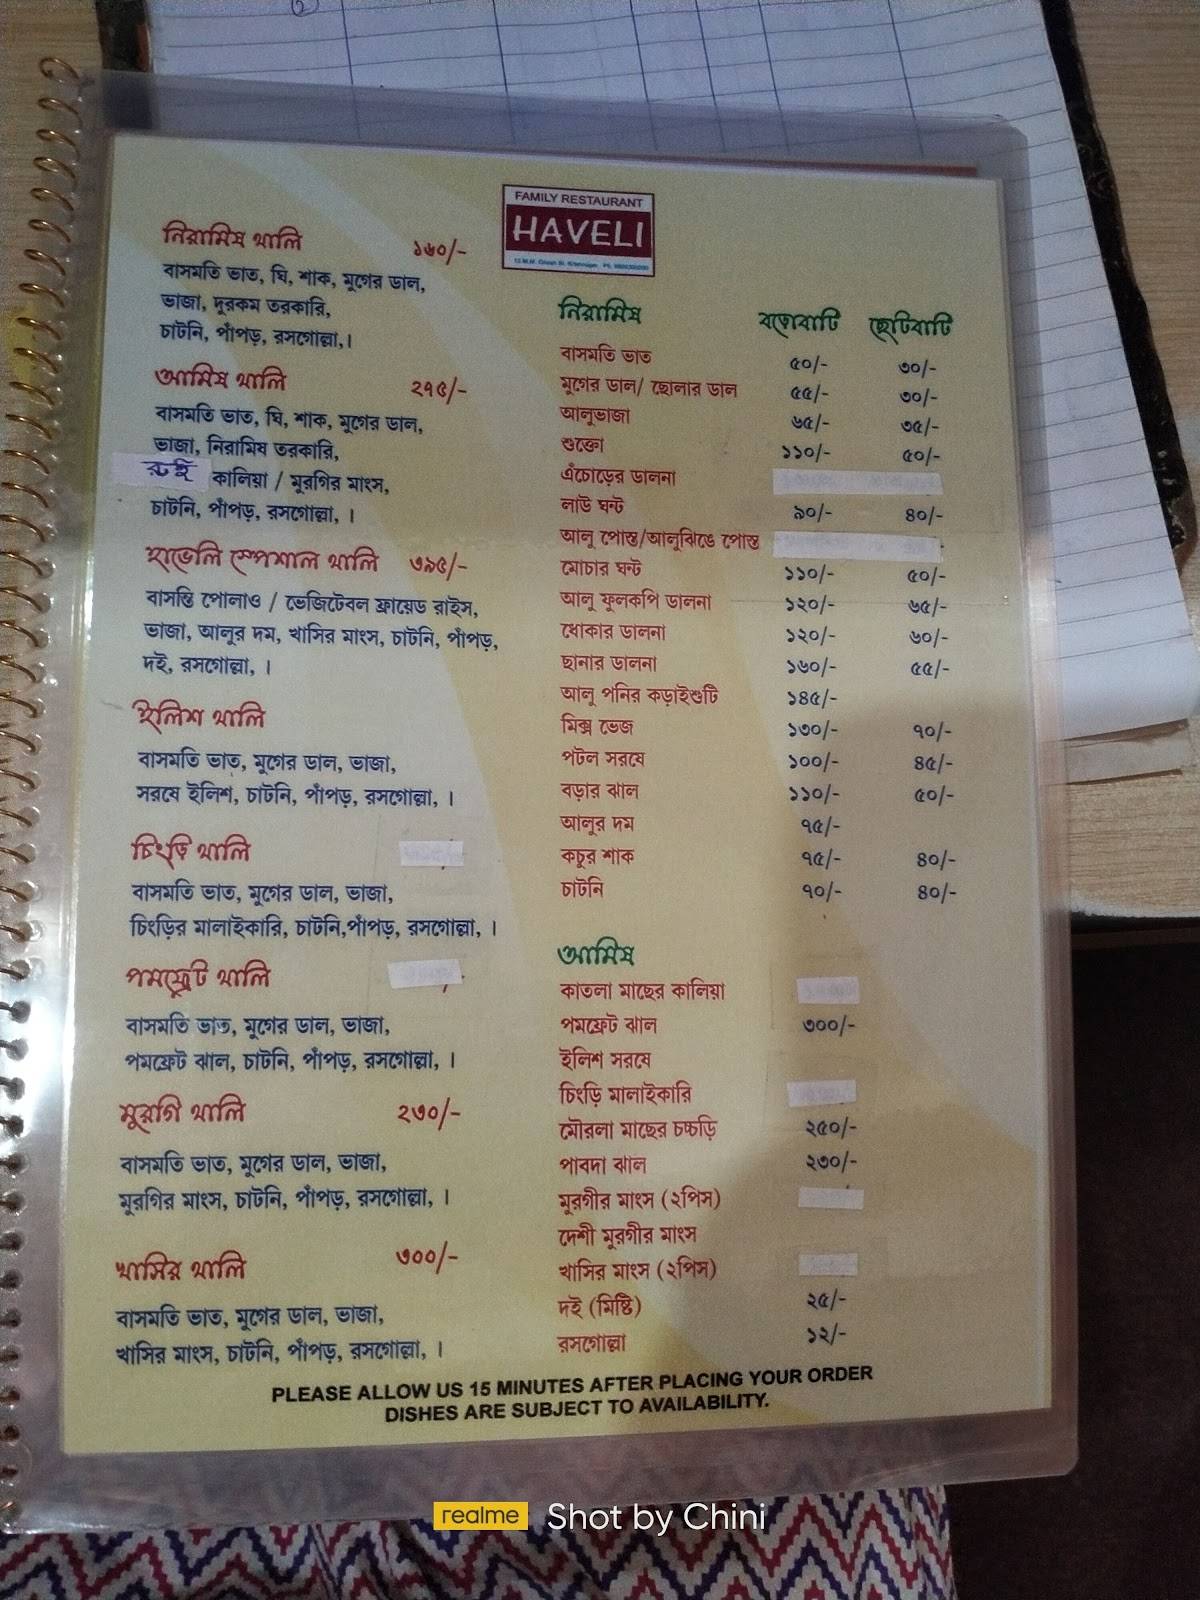 FAMILY RESTAURANT
HAVELI
নিরামিষ থালি ১৬০/-
বাসমতি ভাত, ঘি, শাক, মুগের ডাল,
ভাজা, দুরকম তরকারি,
চাটনি, পাঁপড়, রসগোল্লা,।
আমিষ থালি ২৭৫/-
বাসমতি ভাত, ঘি, শাক, মুগের ডাল,
ভাজা, নিরামিষ তরকারি,
রুই কালিয়া / মুরগির মাংস,
চাটনি, পাঁপড়, রসগোল্লা, ।
হাভেলি স্পেশাল থালি ৩৯৫/-
বাসন্তি পোলাও / ভেজিটেবল ফ্রায়েড রাইস,
ভাজা, আলুর দম, খাসির মাংস, চাটনি, পাঁপড়,
দই, রসগোল্লা, ।
ইলিশ থালি
বাসমতি ভাত, মুগের ডাল, ভাজা,
সরষে ইলিশ, চাটনি, পাঁপড়, রসগোল্লা, ।
চিংড়ি থালি
বাসমতি ভাত, মুগের ডাল, ভাজা,
চিংড়ির মালাইকারি, চাটনি,পাঁপড়, রসগোল্লা, ।
পমফ্রেট থালি
বাসমতি ভাত, মুগের ডাল, ভাজা,
পমফ্রেট ঝাল, চাটনি, পাঁপড়, রসগোল্লা, ।
মুরগি থালি ২৩০/-
বাসমতি ভাত, মুগের ডাল, ভাজা,
মুরগির মাংস, চাটনি, পাঁপড়, রসগোল্লা, ।
খাসির থালি ৩০০/-
বাসমতি ভাত, মুগের ডাল, ভাজা,
খাসির মাংস, চাটনি, পাঁপড়, রসগোল্লা, ।
নিরামিষ বড়োবাটি ছোটবাটি
বাসমতি ভাত ৫০/- ৩০/-
মুগের ডাল/ ছোলার ডাল ৫৫/- ৩০/-
আলুভাজা ৬৫/- ৩৫/-
শুক্তো ১১০/- ৫০/-
এঁচোড়ের ডালনা
লাউ ঘন্ট ৯০/- ৪০/-
আলু পোস্ত/আলুঝিঙে পোস্ত
মোচার ঘন্ট ১১০/- ৫০/-
আলু ফুলকপি ডালনা ১২০/- ৬৫/-
ধোকার ডালনা ১২০/- ৬০/-
ছানার ডালনা ১৬০/- ৫৫/-
আলু পনির কড়াইশুটি ১৪৫/-
মিক্স ভেজ ১৩০/- ৭০/-
পটল সরষে ১০০/- ৪৫/-
বড়ার ঝাল ১১০/- ৫০/-
আলুর দম ৭৫/-
কচুর শাক ৭৫/- ৪০/-
চাটনি ৭০/- ৪০/-
আমিষ
কাতলা মাছের কালিয়া
পমফ্রেট ঝাল ৩০০/-
ইলিশ সরষে
চিংড়ি মালাইকারি
মৌরলা মাছের চচ্চড়ি ২৫০/-
পাবদা ঝাল ২৩০/-
মুরগীর মাংস (২পিস)
দেশী মুরগীর মাংস
খাসির মাংস (২পিস)
দই (মিষ্টি) ২৫/-
রসগোল্লা ১২/-
PLEASE ALLOW US 15 MINUTES AFTER PLACING YOUR ORDER
DISHES ARE SUBJECT TO AVAILABILITY.
realme Shot by Chini